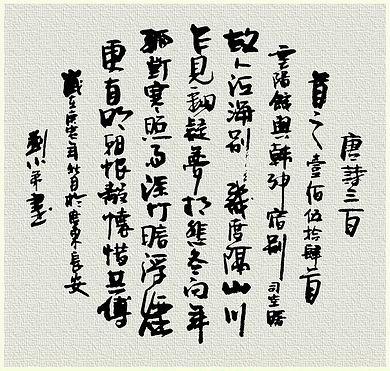 唐詩三百
首之壹佰伍拾肆首
雲陽館與韓紳宿別 司空曙
故人江海別幾度隔山川
乍見翻疑夢相悲各问年
孤灯寒照雨深竹暗浮煙
更有明朝恨離懷惜共傳
歲在庚寅年於廣東長安
劉小書